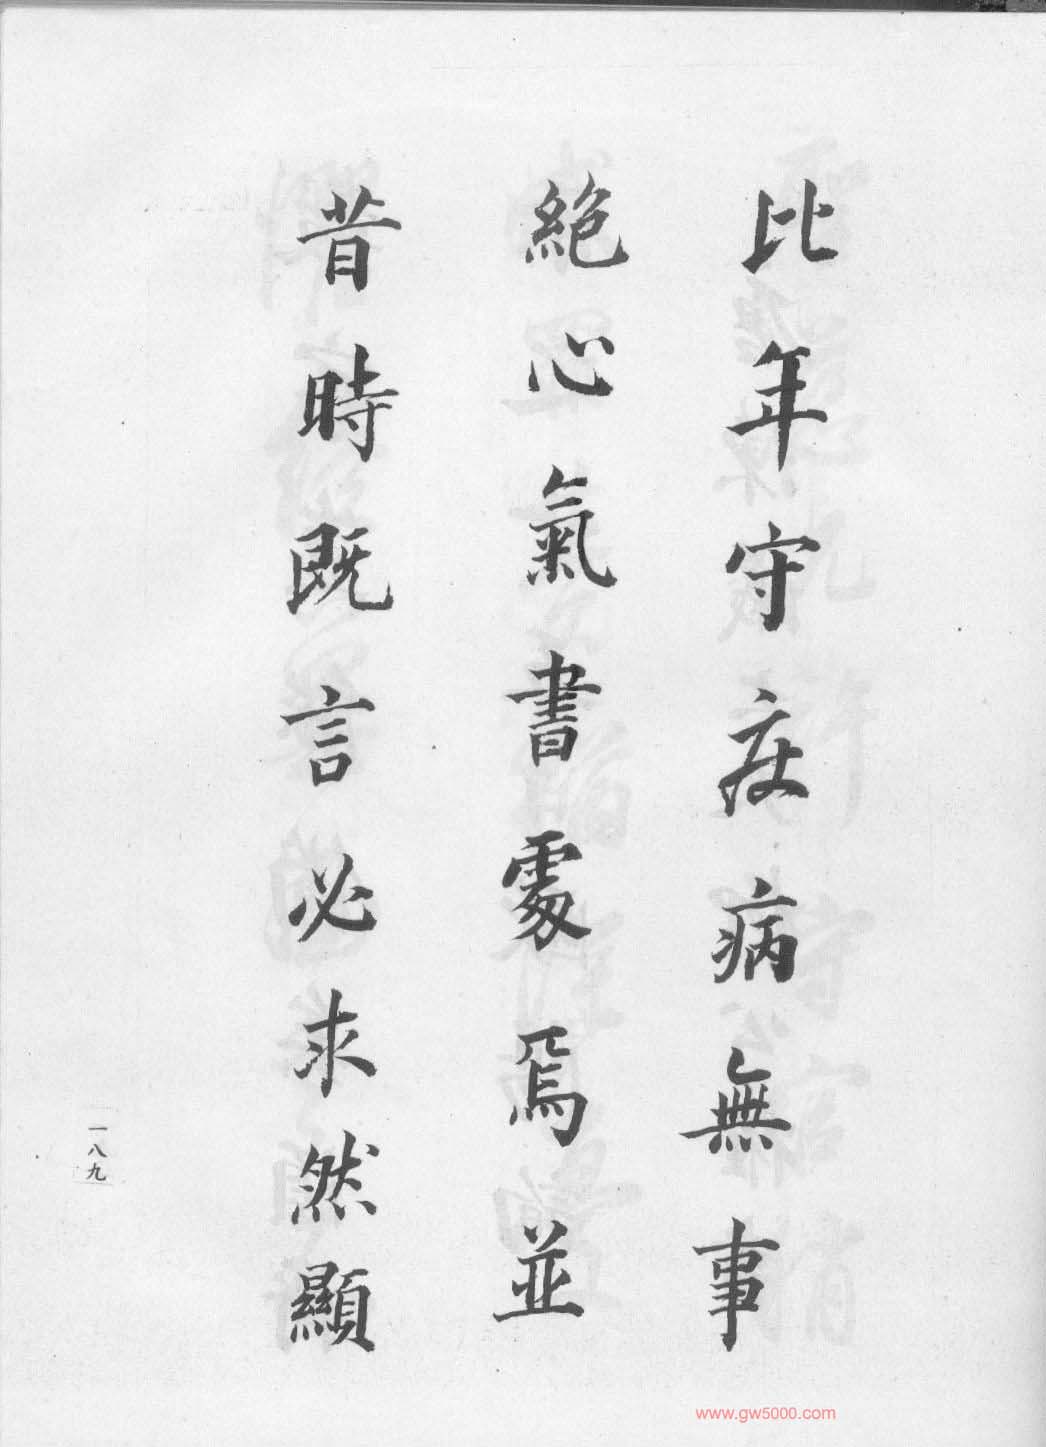 比年守疾病無事
絶心氣書處焉並
昔時既言必求然顯
一八九
www.gw5000.com